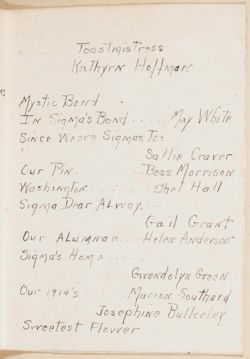 Toastmistress
Kathyrn Hoffman
Mystic Bond
In Sigma's Bond ..... May White
Since Weore Sigmas Too
Sallie Craver
Our Pin ...... Bess Morrison
Washington ...... Ethel Hall
Sigma Dear Alway...
Gail Grant
Our Alumnae .... Helen Anderson
Sigma's Home ......
Gwendolyn Green
Our 1914's ....... Marion Southard
Josephine Bulkeley
Sweetest Flower